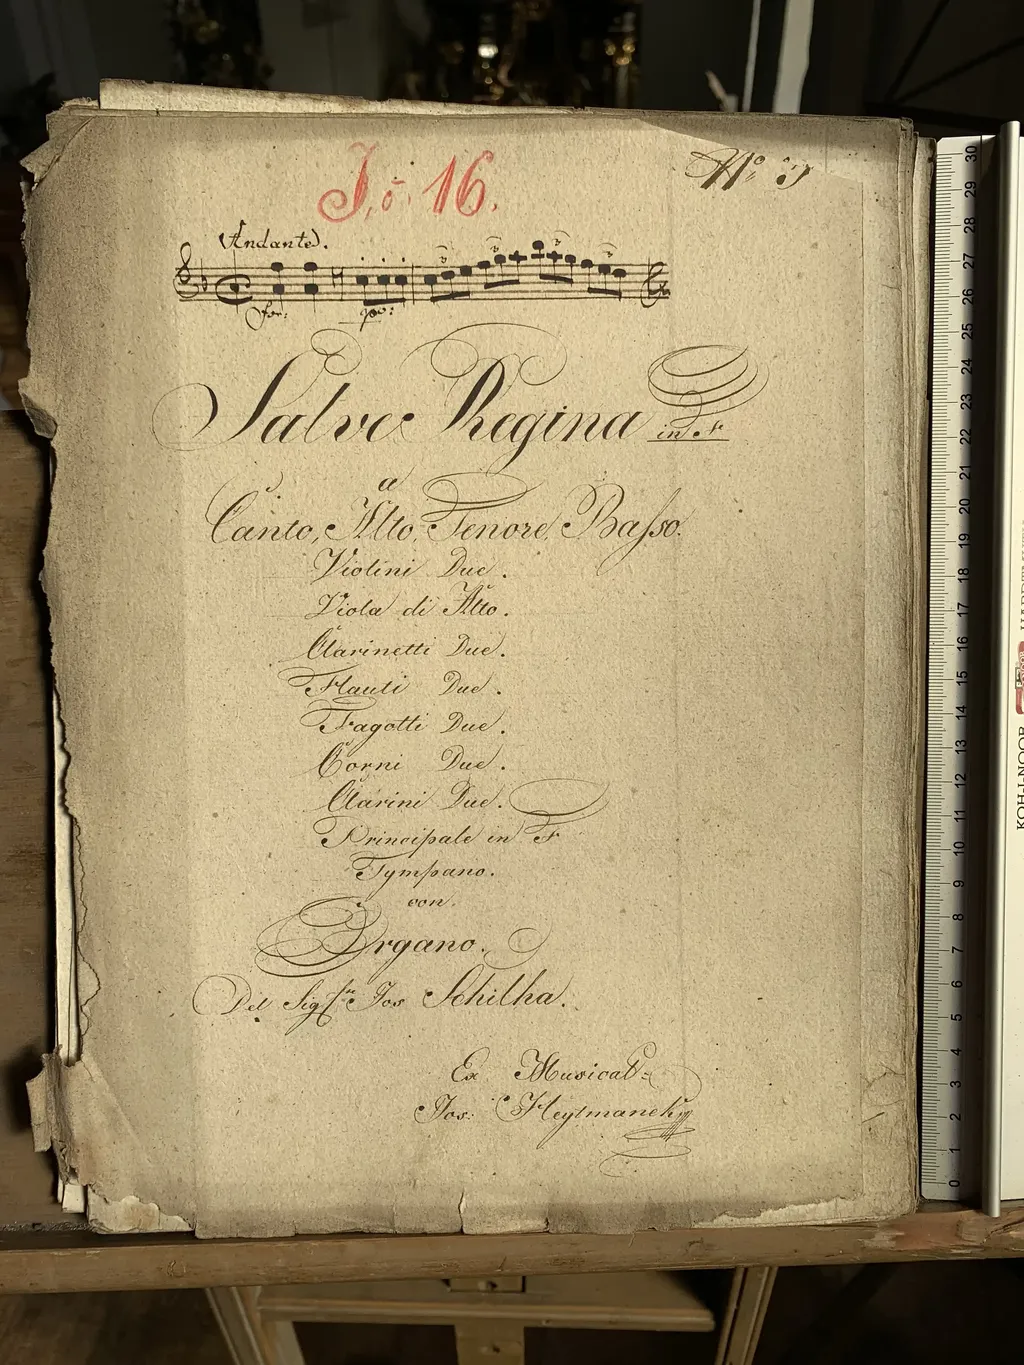 J. č. 16.
No 3
Andante.
for:
po:
Salve Regina in F
a
Canto, Alto, Tenore, Basso.
Violini Due.
Viola di Alto.
Clarinetti Due.
Flauti Due.
Fagotti Due.
Corni Due.
Clarini Due.
Principale in F
Tympano.
con.
Organo.
Del Sig. Jos Schilha.
Ex Musical:
Jos:
30
29
28
27
26
25
24
23
22
21
20
19
18
17
16
15
14
13
12
11
10
9
8
7
6
5
4
3
2
1
0
KOH-I-NOOR